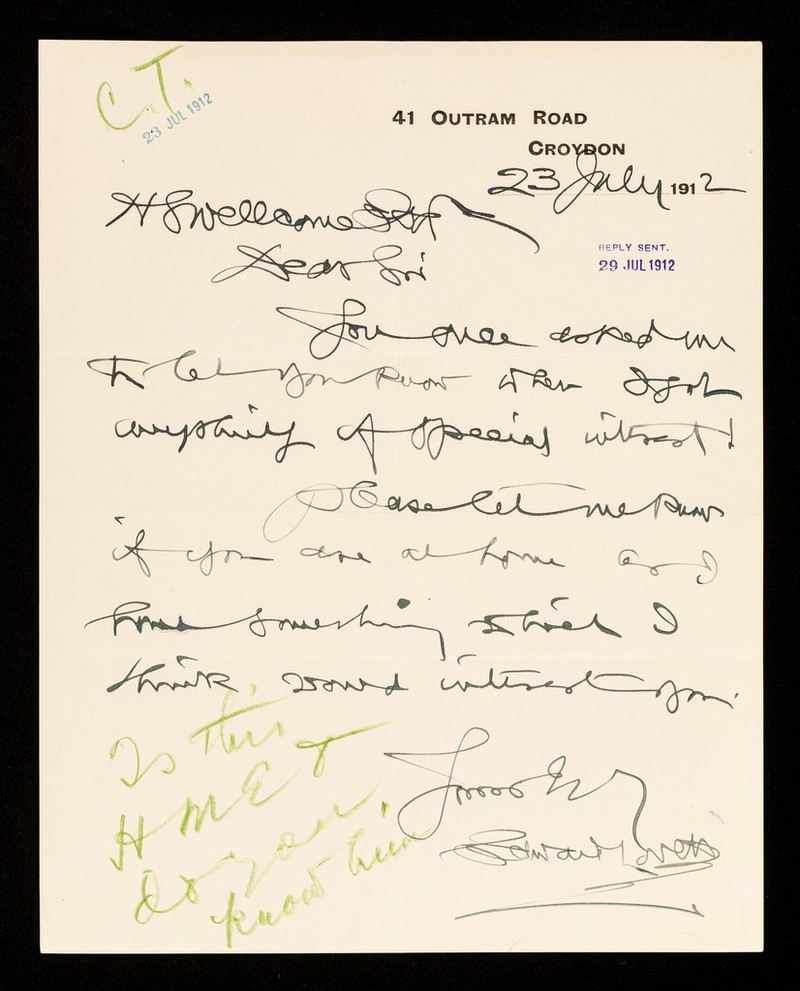 C.T.
23 JUL 1912
41 OUTRAM ROAD
CROYDON
23 July 1912
H S Wellcome Esq
REPLY SENT.
29 JUL 1912
Dear Sir
You once asked me
to let you know when I got
anything of special interest!
Please let me know
if you are at home as I
have something which I
think would interest you.
Yours
Edward Lovett
Is this
H M E &
do you
know him